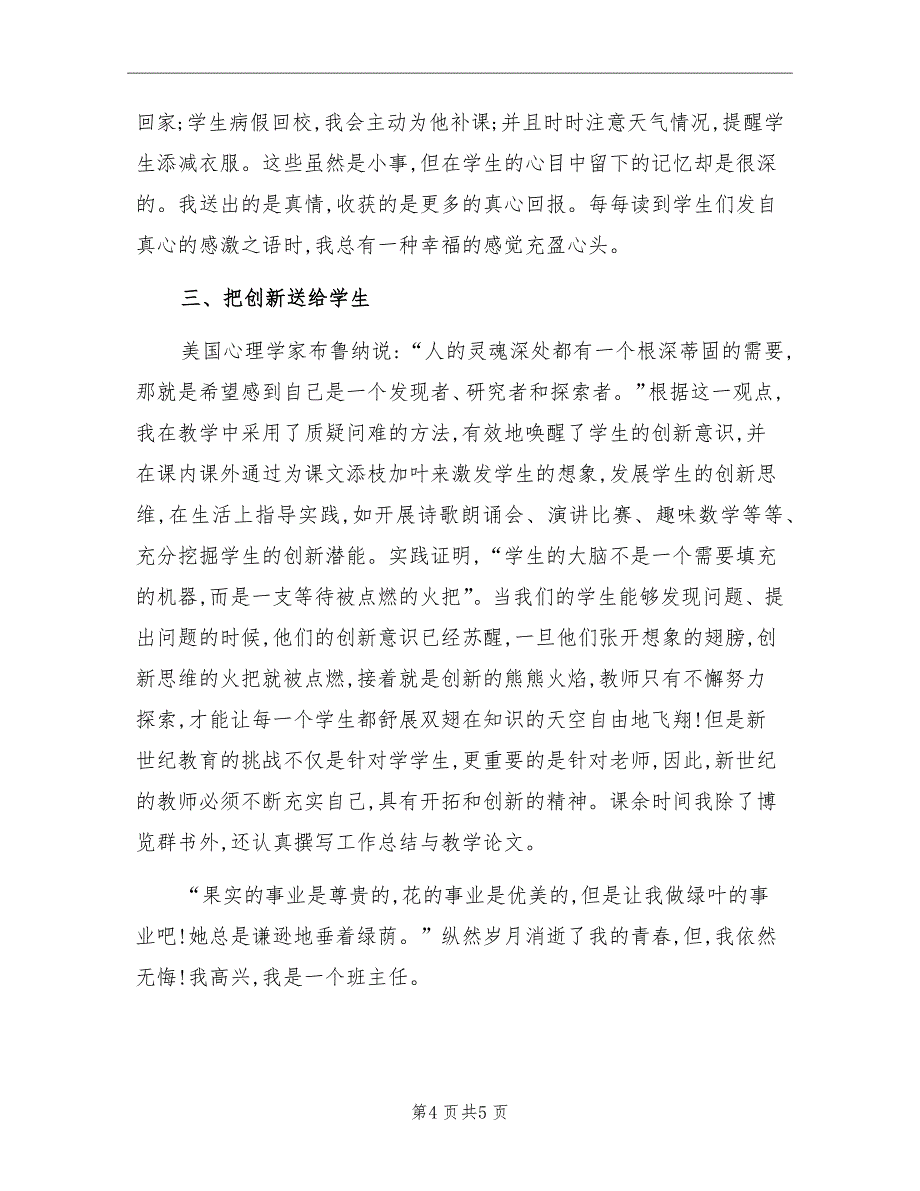 回家;学生病假回校,我会主动为他补课;并且时时注意天气情况,提醒学
生添减衣服。这些虽然是小事,但在学生的心目中留下的记忆却是很深
的。我送出的是真情,收获的是更多的真心回报。每每读到学生们发自
真心的感激之语时,我总有一种幸福的感觉充盈心头。
三、把创新送给学生
美国心理学家布鲁纳说:“人的灵魂深处都有一个根深蒂固的需要,
那就是希望感到自己是一个发现者、研究者和探索者。”根据这一观点,
我在教学中采用了质疑问难的方法,有效地唤醒了学生的创新意识,并
在课内课外通过为课文添枝加叶来激发学生的想象,发展学生的创新思
维,在生活上指导实践,如开展诗歌朗诵会、演讲比赛、趣味数学等等、
充分挖掘学生的创新潜能。实践证明,“学生的大脑不是一个需要填充
的机器,而是一支等待被点燃的火把”。当我们的学生能够发现问题、提
出问题的时候,他们的创新意识已经苏醒,一旦他们张开想象的翅膀,创
新思维的火把就被点燃,接着就是创新的熊熊火焰,教师只有不懈努力
探索,才能让每一个学生都舒展双翅在知识的天空自由地飞翔!但是新
世纪教育的挑战不仅是针对学学生,更重要的是针对老师,因此,新世纪
的教师必须不断充实自己,具有开拓和创新的精神。课余时间我除了博
览群书外,还认真撰写工作总结与教学论文。
“果实的事业是尊贵的,花的事业是优美的,但是让我做绿叶的事
业吧!她总是谦逊地垂着绿荫。”纵然岁月消逝了我的青春,但,我依然
无悔!我高兴,我是一个班主任。
第4 页共5 页